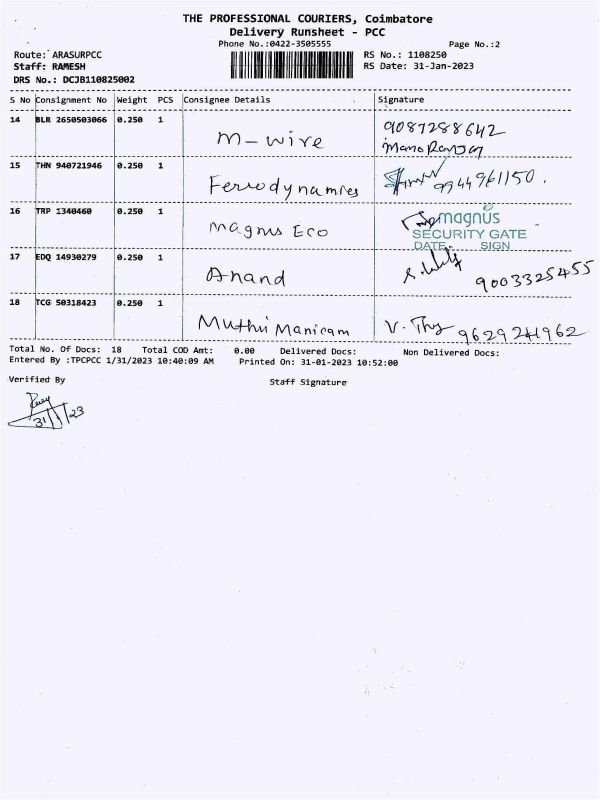 THE PROFESSIONAL COURIERS, Coimbatore
Delivery Runsheet - PCC
Phone No.:0422-3505555 Page No.:2
Route: ARASURPCC RS No.: 1108250
Staff: RAMESH RS Date: 31-Jan-2023
DRS No.: DCJB110825002
S No Consignment No Weight PCS Consignee Details Signature
14 BLR 2650503066 0.250 1 M-wire 9087288642
15 THN 940721946 0.250 1 Ferrodynamics 9944961150.
16 TRP 1340460 0.250 1 Magnus Eco magnus
SECURITY GATE
DATE SIGN
17 EDQ 14930279 0.250 1 Anand 9003325455
18 TCG 50318423 0.250 1 Muthu Manicam V. Thy 9629241962
Total No. Of Docs: 18 Total COD Amt: 0.00 Delivered Docs: Non Delivered Docs:
Entered By :TPCPCC 1/31/2023 10:40:09 AM Printed On: 31-01-2023 10:52:00
Verified By Staff Signature
31/1/23